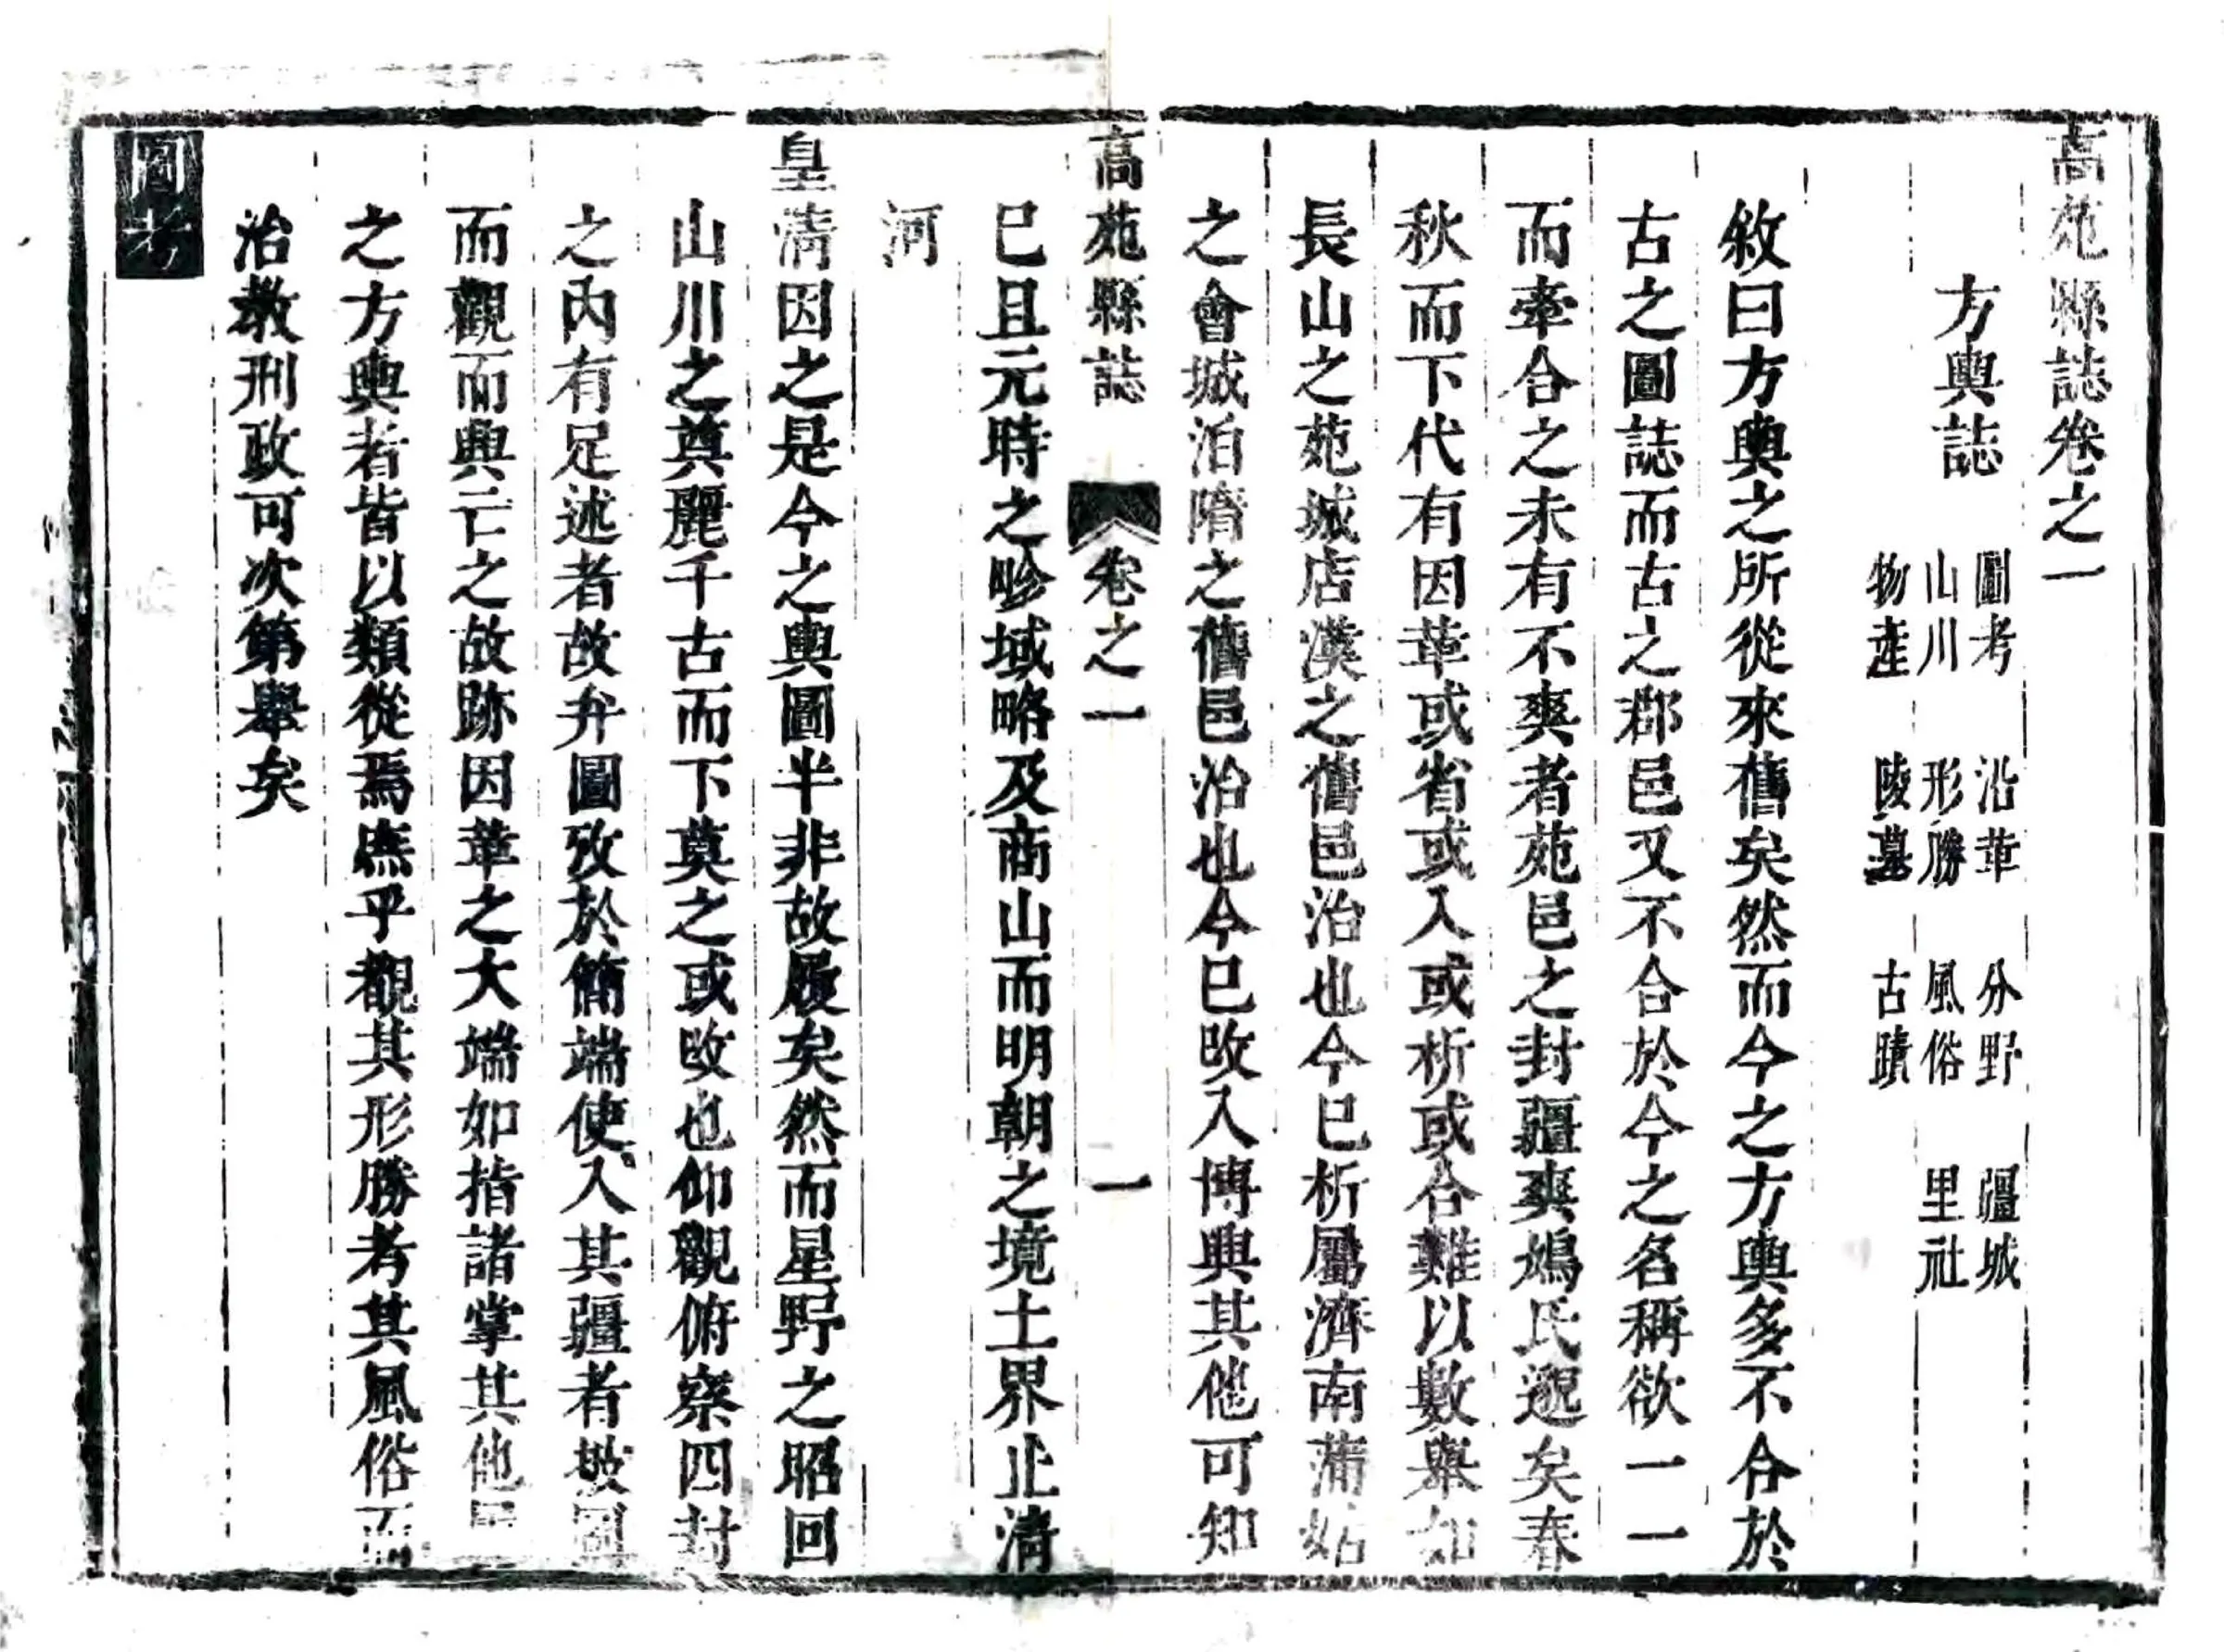 高苑縣誌卷之一
方輿誌
圖考 沿革 分野 疆域
山川 形勝 風俗 里社
物產 陵墓 古蹟
敘曰方輿之所從來舊矣然而今之方輿多不合於
古之圖誌而古之郡邑又不合於今之名稱欲一一
而牽合之未有不爽者苑邑之封疆爽鳩氏邈矣春
秋而下代有因革或省或入或析或合難以數舉如
長山之苑城店漢之舊邑治也今已析屬濟南蒲姑
之會城洎隋之舊邑治也今已改入博興其他可知
已且元時之畛域略及商山而明朝之境土界止清
河
皇清因之是今之輿圖半非故履矣然而星野之昭回
山川之奠麗千古而下莫之或改也仰觀俯察四封
之內有足述者故弁圖攷於簡端使入其疆者披圖
而觀而興亡之故跡因革之大端如指諸掌其他
之方輿者皆以類從焉庶乎觀其形勝考其風俗而
治教刑政可次第舉矣
圖考
高苑縣誌 卷之一 一